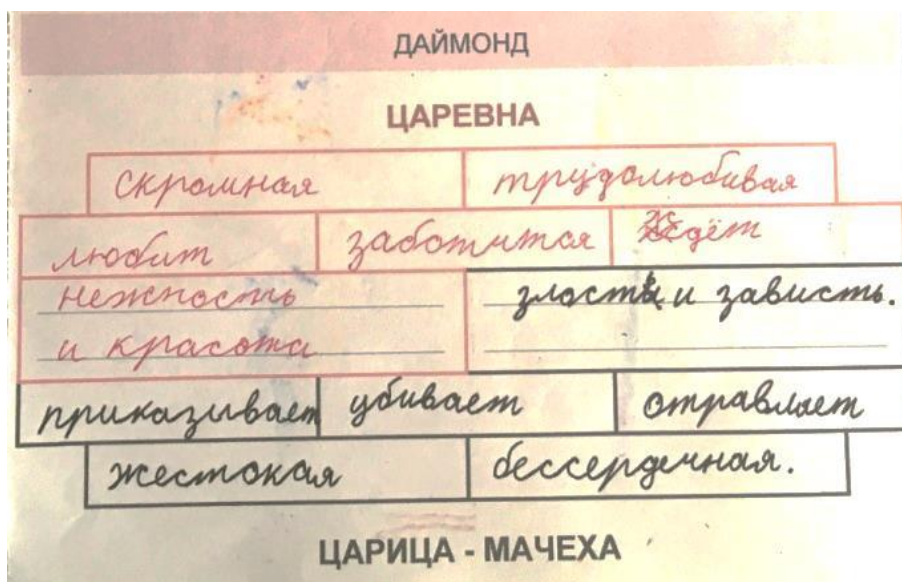 ДАЙМОНД
ЦАРЕВНА
скромная трудолюбивая
любит заботится ждёт
нежность злость и зависть.
и красота
приказывает убивает отправляет
жестокая бессердечная.
ЦАРИЦА - МАЧЕХА